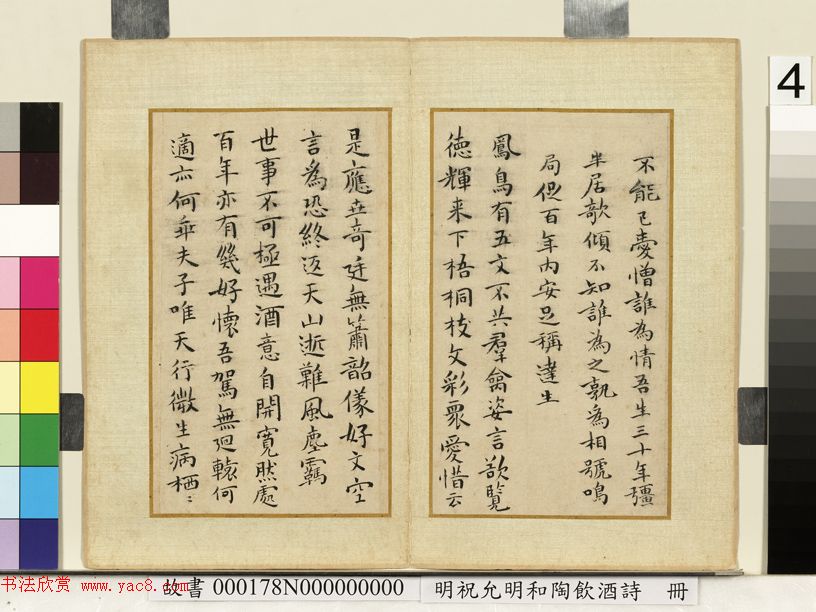 不能已憂憎誰為情吾生三十年彊
半居欹傾不知誰為之孰為相號鳴
局促百年內安足稱達生
鳳鳥有五文不共羣禽姿言欲覽
德輝来下梧桐枝文彩眾愛惜云
是應世奇廷無簫韶儀好文空
言為恐終返天山逝難風塵羈
世事不可極遇酒意自開寬然處
百年亦有幾好懷吾駕無迴轅何
適亦何乖夫子唯天行微生病栖〻
4
书法欣赏 www.yac8.com
故書 000178N000000000
明祝允明和陶飲酒詩 冊